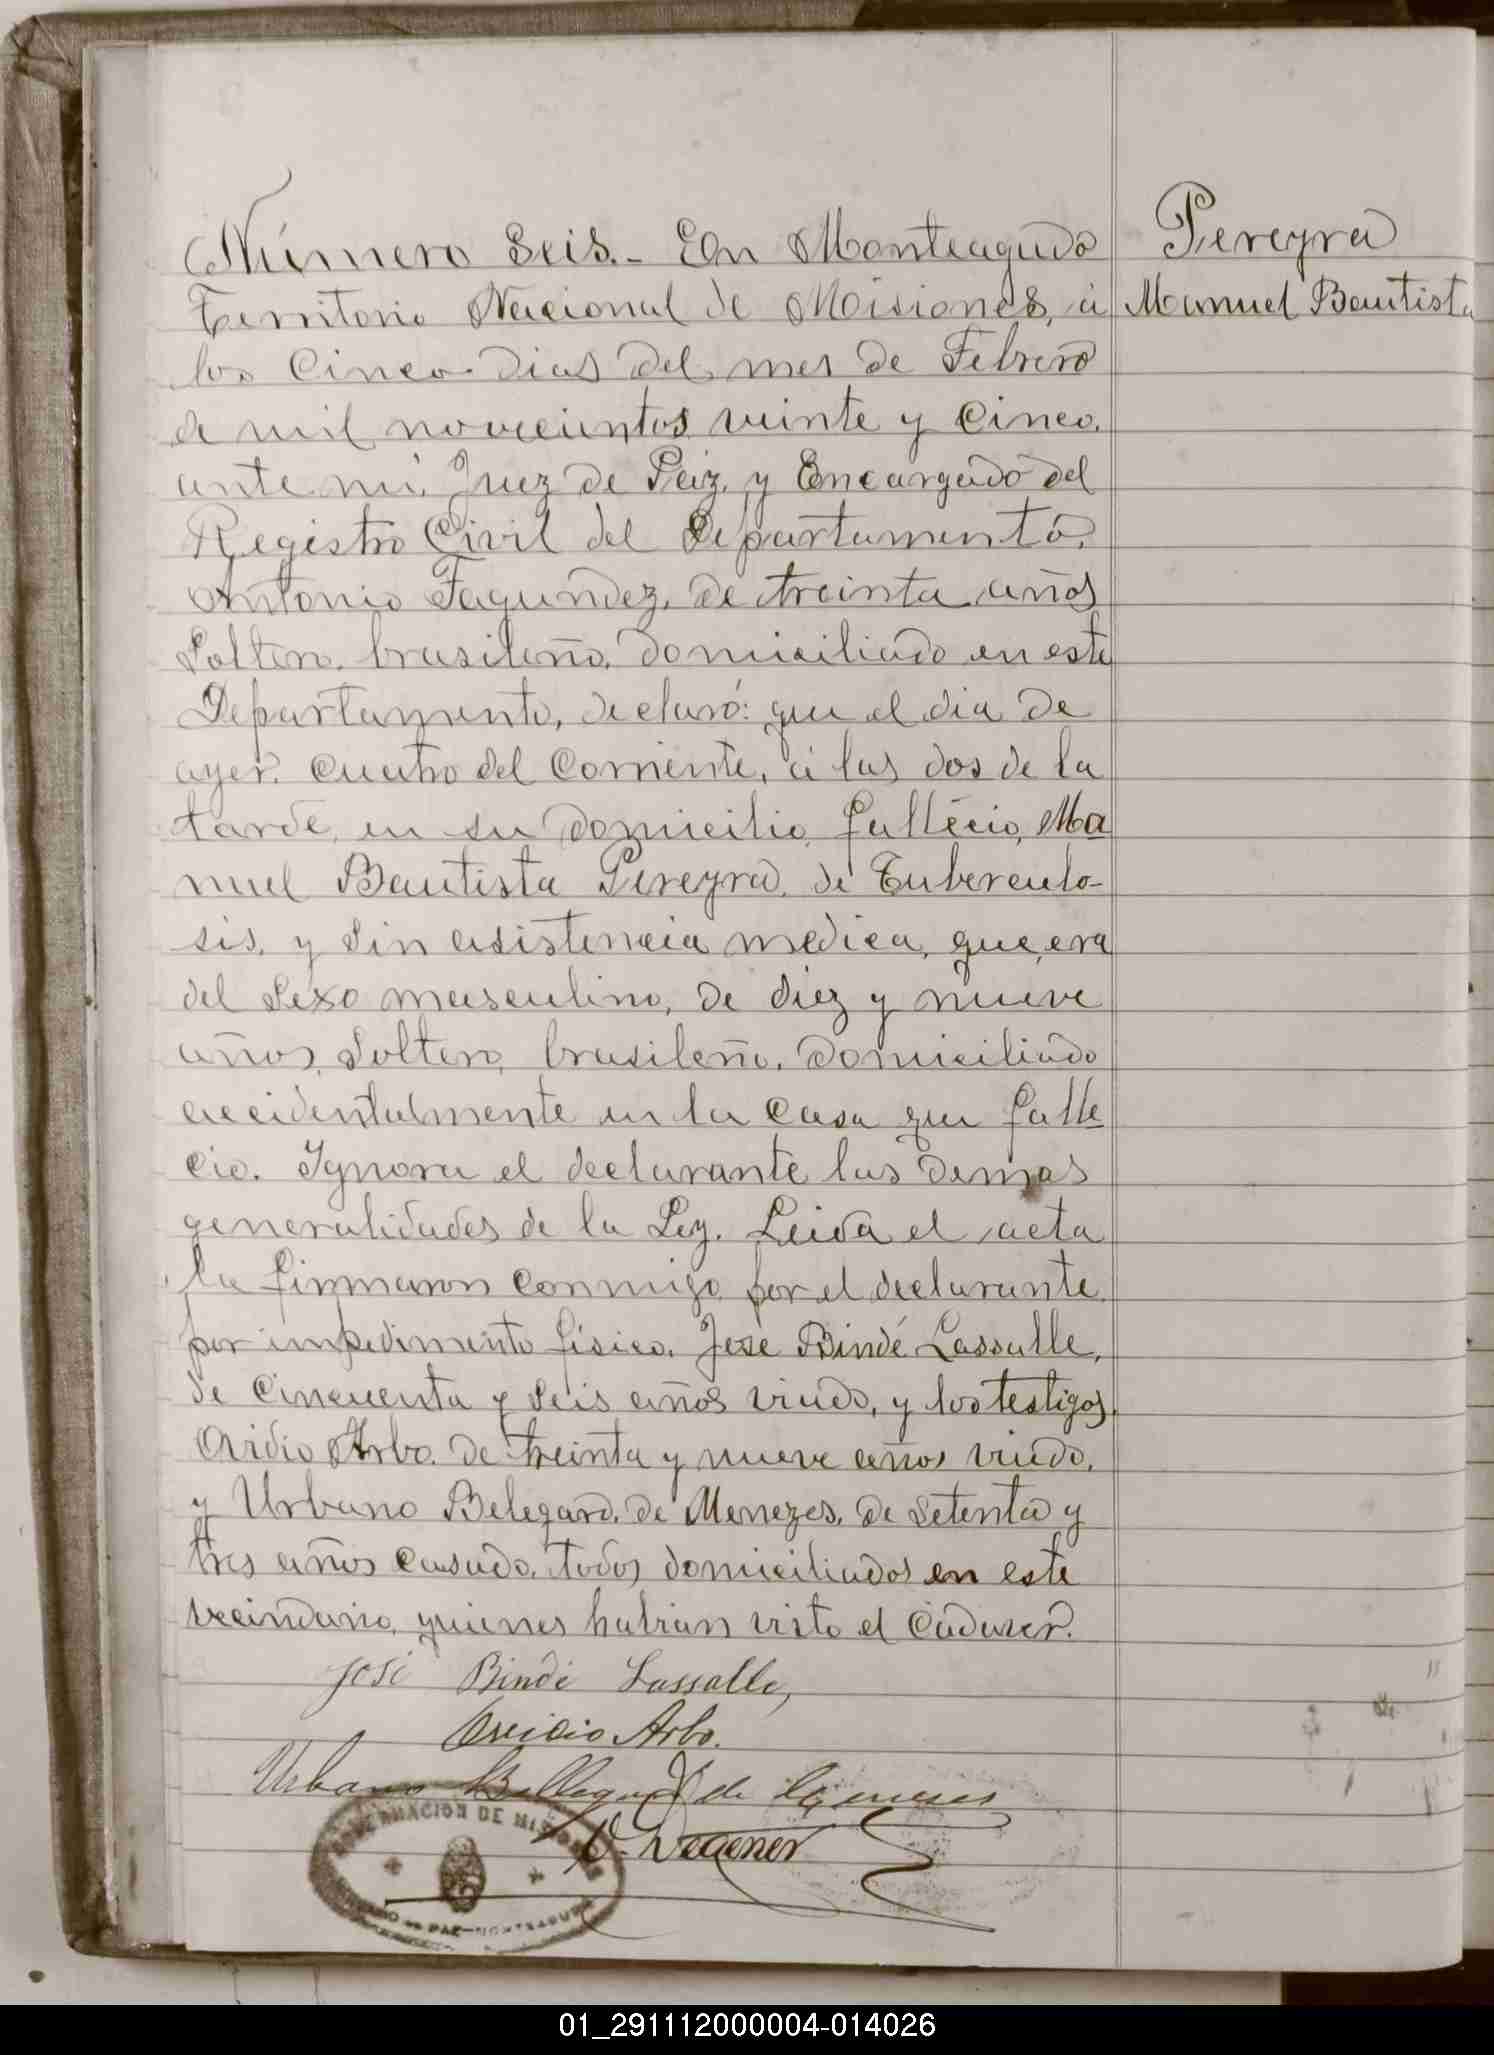 Número Seis.- En Monteagudo
Territorio Nacional de Misiones, á
los Cinco dias del mes de Febrero
de mil novecientos veinte y Cinco,
ante mi, Juez de Paz, y Encargado del
Registro Civil del Departamento,
Antonio Fagundez, de treinta años
Soltero, brasileño, domiciliado en este
Departamento, declaró: que el dia de
ayer, cuatro del Corriente, á las dos de la
tarde, en su domicilio, falleció, Ma
nuel Bautista Pereyra, de Tuberculo-
sis, y sin asistencia medica, que, era
del Sexo masculino, de diez y nueve
años, Soltero, brasileño, domiciliado
accidentalmente en la Casa que falle
cio. Ignora el declarante las demas
generalidades de la Ley. Leida el acta
la firmaron conmigo, por el declarante,
por impedimento fisico, José Bindé Lassalle,
de Cincuenta y Seis años viudo, y los testigos,
Ovidio Arbo, de treinta y nueve años viudo,
y Urbano Belegard, de Menezes, de setenta y
tres años Casado, todos domiciliados en este
vecindario, quienes habian visto el Cadaver.
José Bindé Lassalle,
Ovidio Arbo.
Urbano Bellegard de Meneses
O. Wegener
Pereyra
Manuel Bautista
GOBERNACION DE MISIONES
JUZGADO DE PAZ-MONTEAGUDO
01_291112000004-014026